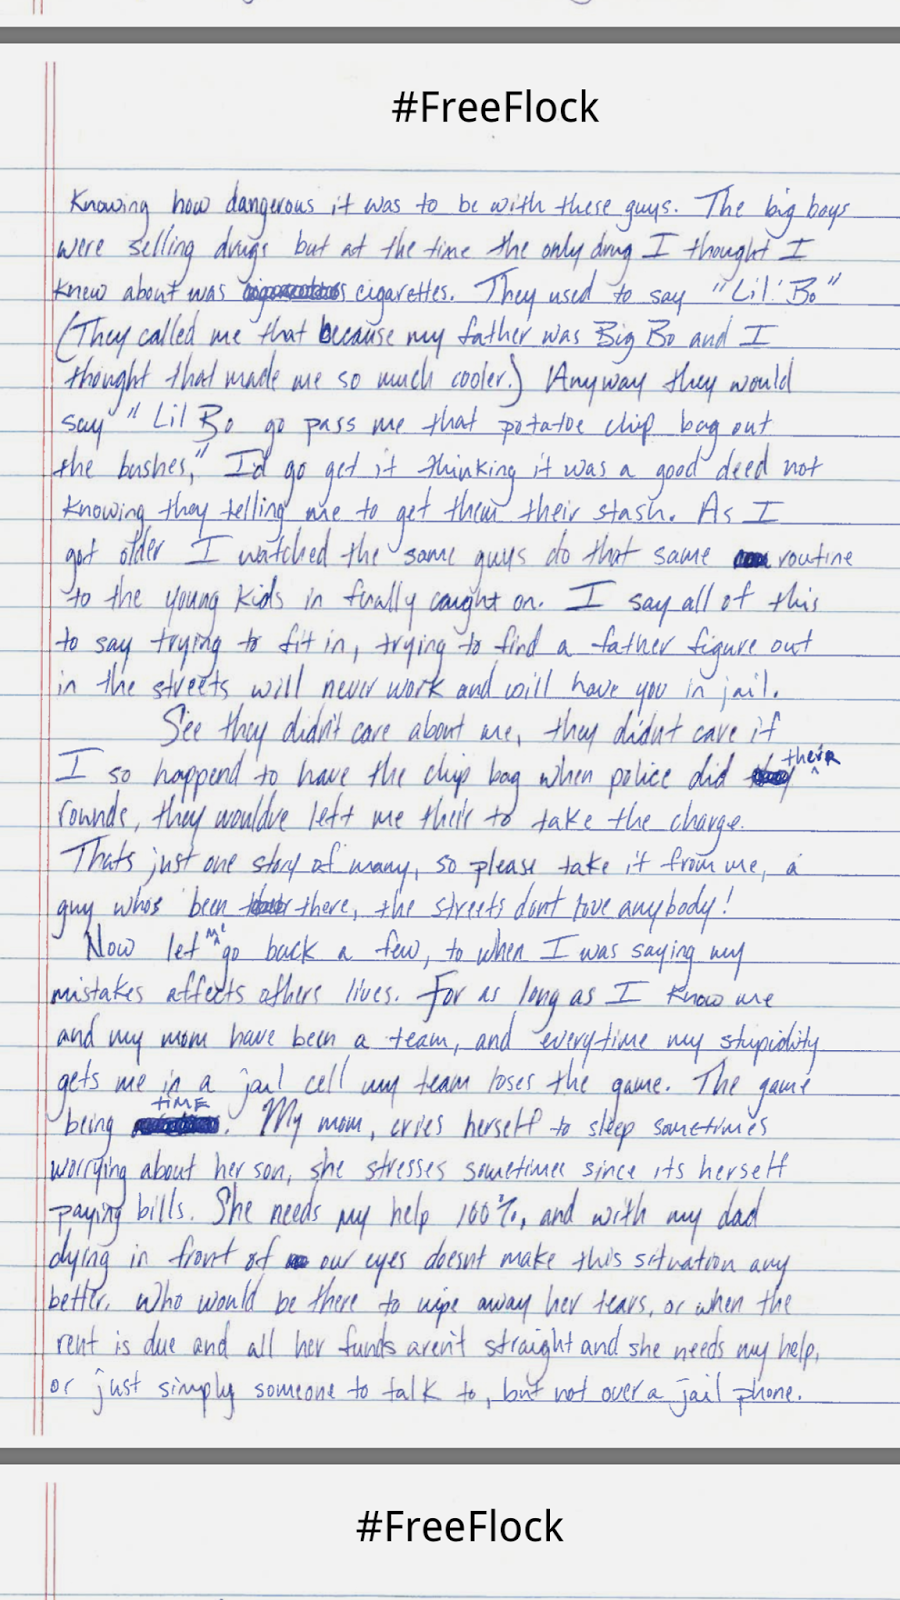 #FreeFlock
Knowing how dangerous it was to be with these guys. The big boys
were selling drugs but at the time the only drug I thought I
knew about was cigarettes. They used to say "Lil' Bo"
(They called me that because my father was Big Bo and I
thought that made me so much cooler.) Anyway they would
say "Lil Bo go pass me that potatoe chip bag out
the bushes," I'd go get it thinking it was a good deed not
knowing they telling me to get them their stash. As I
got older I watched the same guys do that same routine
to the young kids in finally caught on. I say all of this
to say trying to fit in, trying to find a father figure out
in the streets will never work and will have you in jail.
See they didn't care about me, they didnt care if
I so happend to have the chip bag when police did their
rounds, they wouldve left me their to take the charge.
Thats just one story of many, so please take it from me, a
guy who's been there, the streets dont love anybody!
Now let me go back a few, to when I was saying my
mistakes affects others lives. For as long as I know me
and my mom have been a team, and everytime my stupidity
gets me in a jail cell my team loses the game. The game
being TIME. My mom, cries herself to sleep sometimes
worrying about her son, she stresses sometimes since its herself
paying bills. She needs my help 100%, and with my dad
dying in front of our eyes doesnt make this situation any
better. Who would be there to wipe away her tears, or when the
rent is due and all her funds aren't straight and she needs my help,
or just simply someone to talk to, but not over a jail phone.
#FreeFlock